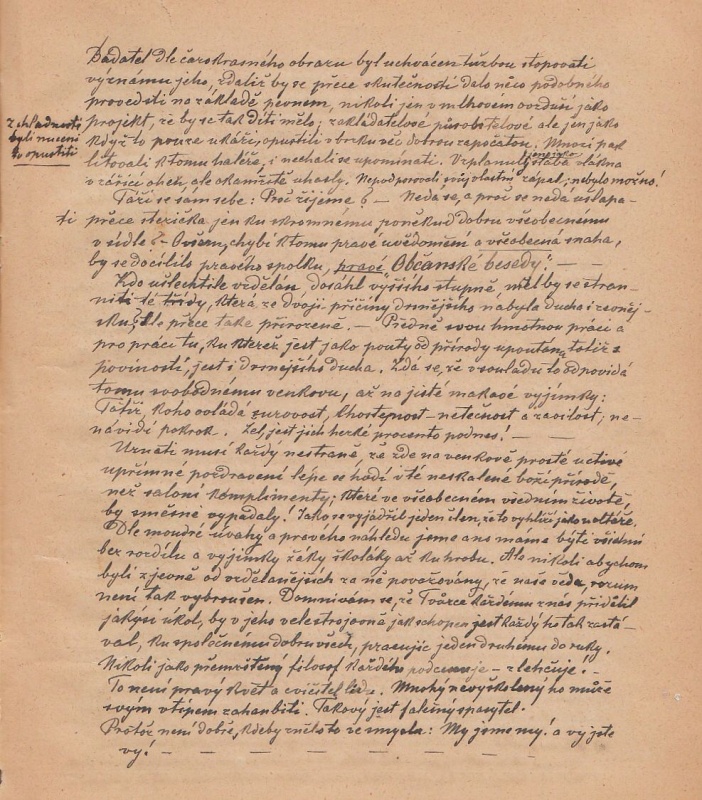 Badatel dle čarokrásného obrazu byl uchvácen tužbou stopovati
významu jeho, zdaliž by se přece skutečností dalo něco podobného
provedsti na základě pevném, nikoli jen v mlhovém ovzduší jako
projekt, že by se tak díti mělo; zakladatelové působitelové ale jen jako
když to pouze ukáží, opustili v krku věc dobrou započatou. Mnozí pak
z chladnosti
byli nuceni
to opustiti
litovali k tomu haléře, i nechali se upomínati. Vzplanul slabá vlákna
v zářící oheň, ale okamžitě uhasly. Nepodporovali svůj vlastní zápal; nebylo možno!
Táži se sám sebe: Proč žijeme? — Nedá se, a proč se nedá ušlapa-
ti přece stezička jen ku skromnému poněkud dobru všeobecnému
v sídle? - Ovšem, chybí k tomu pravé uvědomění a všeobecná snaha,
by se docílilo pravého spolku, pravé „Občanské besedy". —
Kdo ušlechtile vzdělán, dosáhl vyššího stupně, měl by se stran-
niti té třídy, která ze dvojí příčiny drsnějšího nabyla ducha i zevněj-
šku; ale přece také přirozeně. — Předně svou hmotnou prací a
pro práci tu, ku kteréž jest jako pouty od přírody upoután, totiž s
povinností, jest i drsnějšího ducha. Zdá se, že v souladu to odpovídá
tomu svobodnému venkovu, až na jisté makavé vyjímky:
Tatíž, koho ovládá surovost, lhostejnost netečnost a zavilost; ne-
návidí pokrok. Žel, jest jich hezké procento podnes! —
Uznati musí každý nestranně, že zde na venkově prosté uctivé
upřímné pozdravení lépe se hodí v té neskalené boží přírodě,
než saloní komplimenty; které ve všeobecném všedním životě,
by směšně vypadaly! Jako se vyjádřil jeden člen, že to vyhlíží jako u oltáře.
Dle moudré úvahy a pravého náhledu jsme a my máme býti všichni
bez rozdílu a vyjímky žáky školáky až ku hrobu. Ale nikoli abychom
byli zjevně od vzdělanějších za ně považovány, že naše věda, rozum
není tak vybroušen. Domnívám se, že Tvůrce každému z nás přidělil
jakýsi úkol, by v jeho velestrojovně jak schopen jest každý ho tak zastá-
val, ku společnému dobru všech, pracujíc jeden druhému do ruky.
Nikoli jako přemrštěný filosof každého podceňuje - zlehčuje! -
To není pravý květ a cvičitel lidu. Mnohý nevyškolený ho může
svým vtipem zahanbiti. Takový jest falešný spasytel.
Protož není dobře, kdeby znělo to ze smysla: My jsme my! a vy jste
vy! —